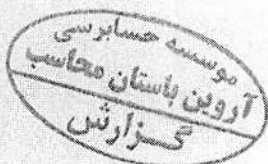 موسسه حسابرسی
آروین باستان محاسب
گزارش